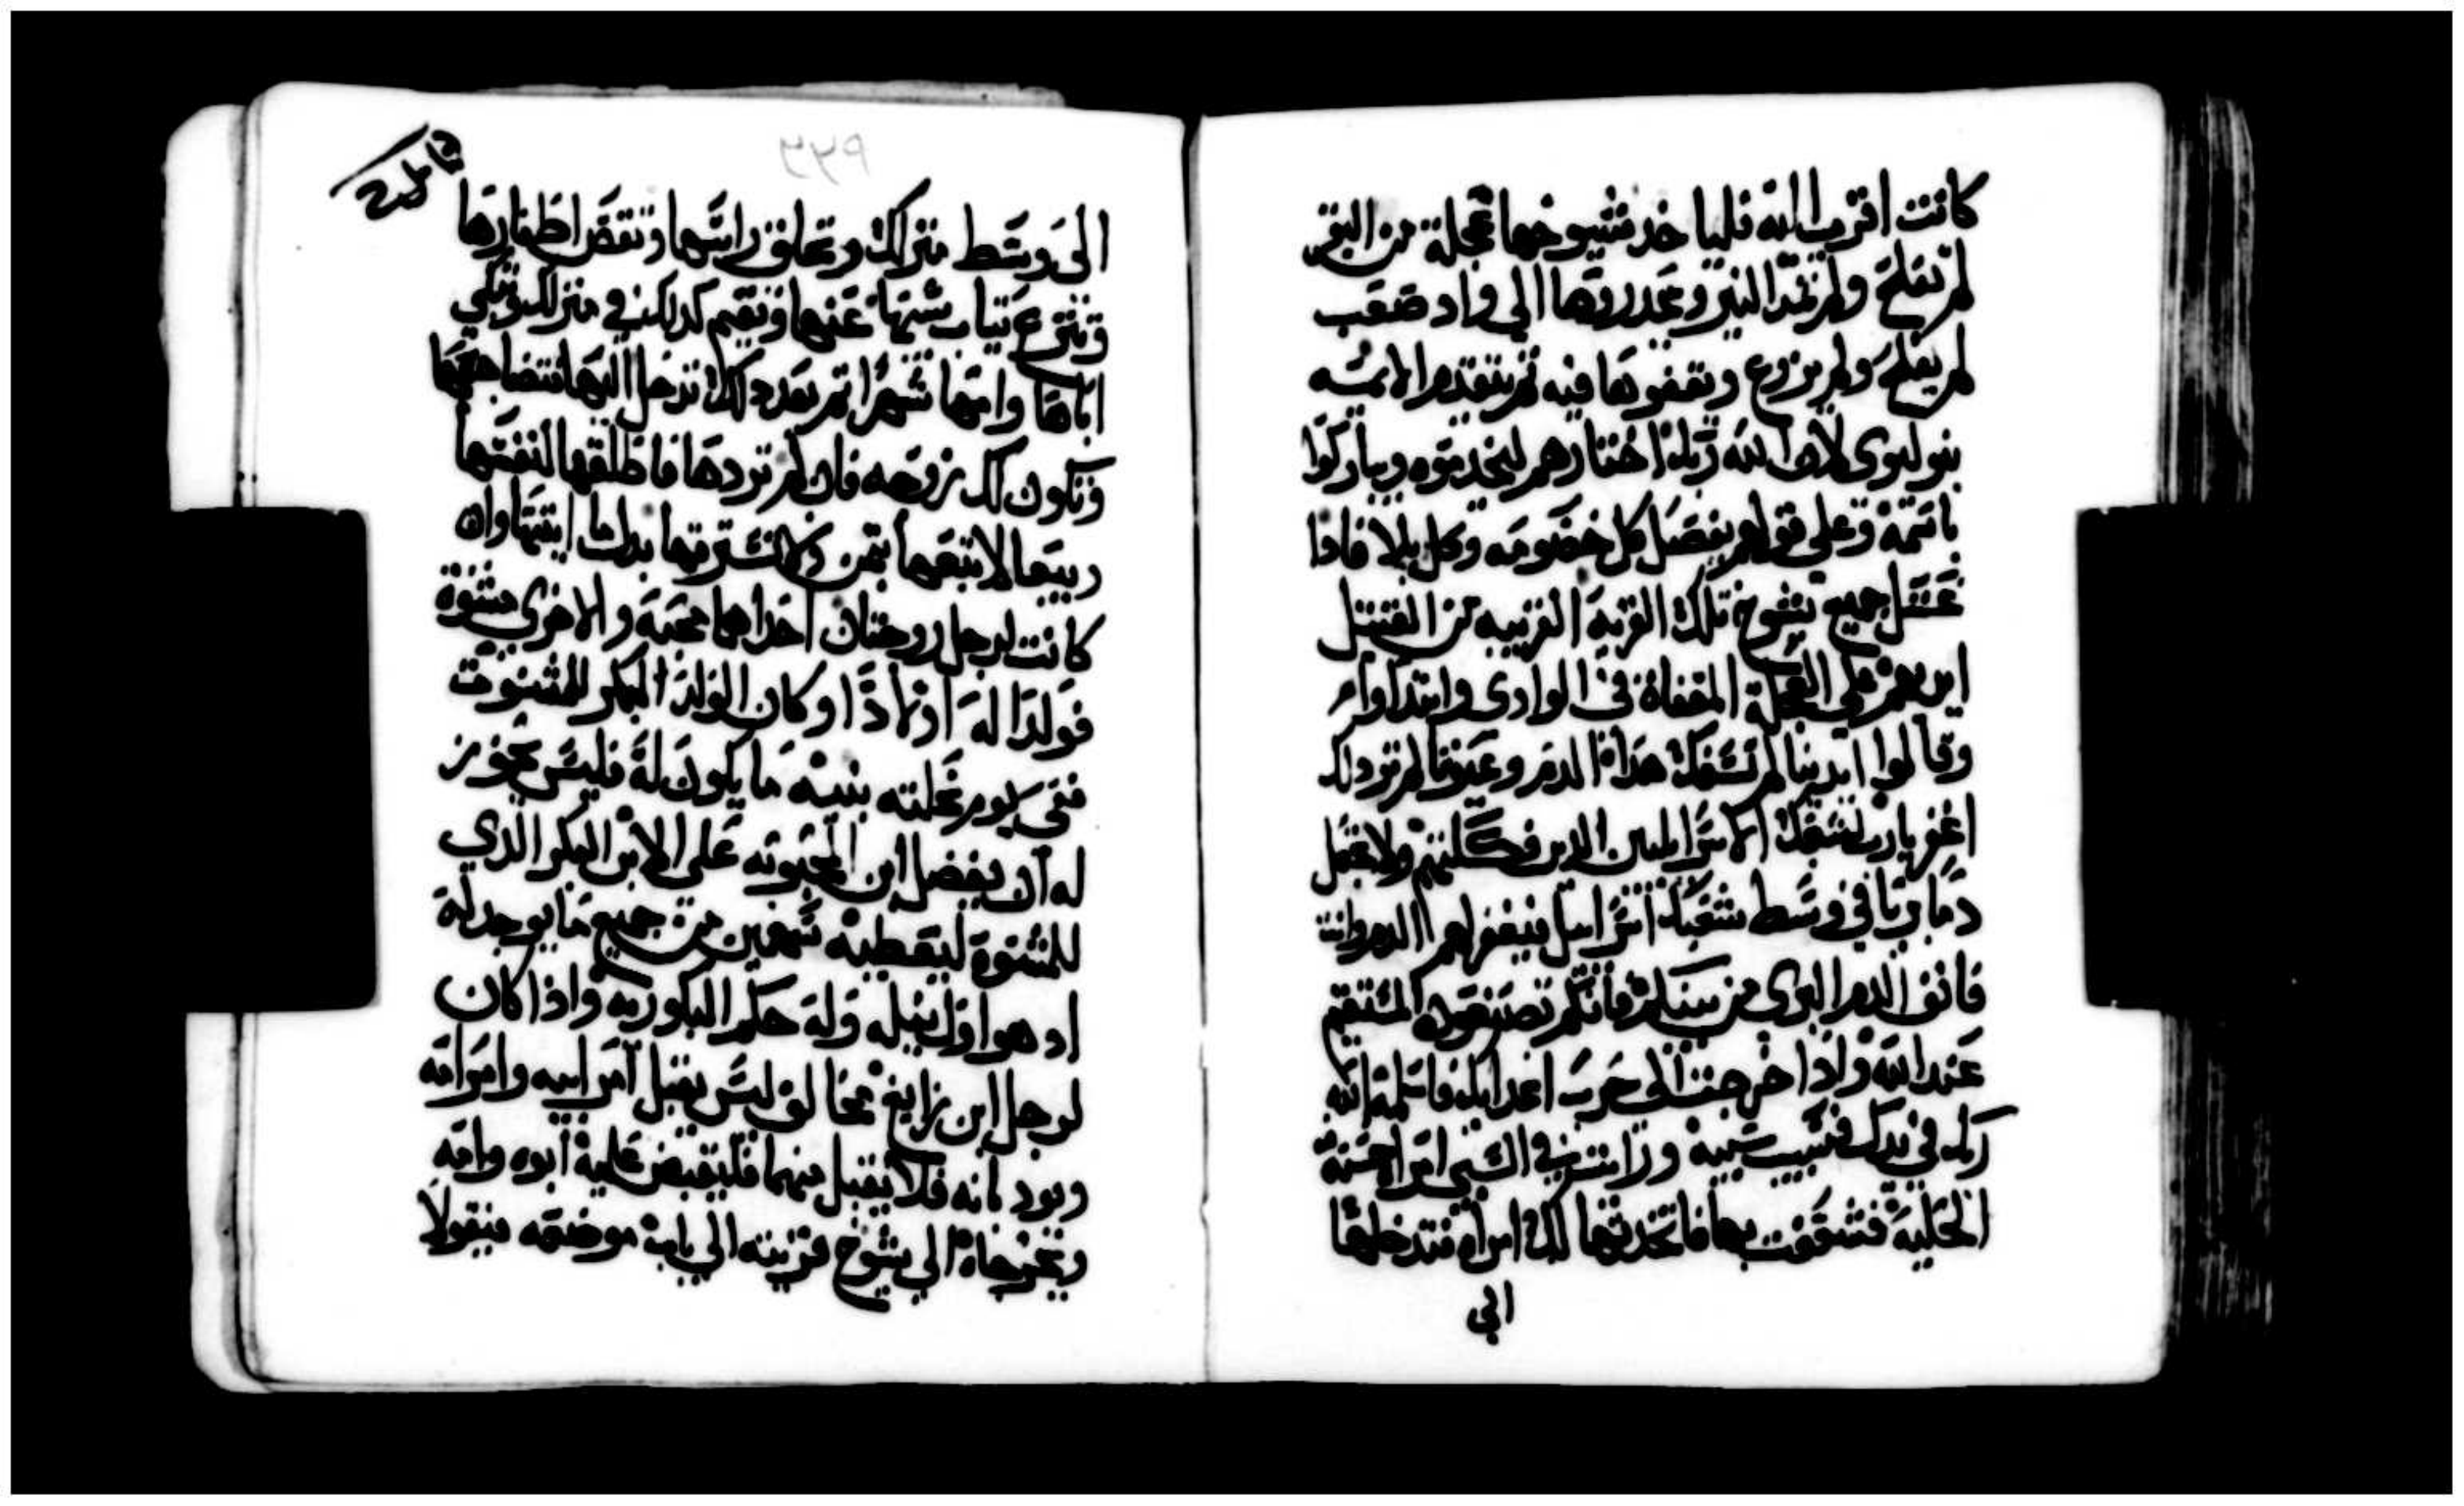 كانت اقرب اليه فلياخد شيوخها عجلة من البقر
لم تفلح ولم تجد النير وتحدروها الي واد صعب
لم يفلح ولم يزرع ويقفوها فيه ثم يتقدم الايمه
بنو ليوى لان الله ربك اختارهم ليخدموه ويباركوا
باسمه وعلي قولهم يفصل كل خصومه وكل بلا فاذا
غسل جميع شيوخ تلك القريه القريبه من القتيل
ايديهم علي العجلة المقفاة في الوادى وابتداوا
وقالوا ايدينا لم تسفك هدا الدم وعيوننا لم تر دلك
اغفر يارب لشعبك اسراييل الدين فككتهم ولا تجعل
دما بريا في وسط شعبك اسراييل فيغفر لهم الدم وانت
فانق الدم البرى من بينكم فانكم تصنعون المستقيم
عند الله واذا خرجت الى حرب اعدايك فاسلمهم الله
ربك في يدك فسبيت سبيه ورايت في السبي امراة حسنة
الحليه فشغفت بها فاتخدتها لك امراه فتدخلها
الي
الى وسط منزلك وتحلق راسها وتقص اظفارها
وتنزع ثياب سبيها عنها وتقيم كدلك في منزلك وتبكي
اباها وامها شهرا ثم بعد دلك تدخل اليها فتضاجعها
وتكون لك زوجه فان لم تردها فاطلقها لنفسها
وبيعا لا تبعها بثمن ولا تسترقها بدلت ايتها وان
كانت لرجل زوجتان احداهما محبة والاخرى مشنوة
فولدا له اولادا وكان الولد البكر للمشنوة
ففي يوم نحلته بنيه ما يكون له فليس يجوز
له ان يفضل ابن المحبوبه على الابن البكر الدي
للمشنوة ليعطيه سهمين من جميع ما يوجد له
اد هو اول نيله وله حكم البكوريه واذا كان
لرجل ابن زايغ مخالف ليس يقبل امر ابيه وامر امه
ويودبانه فلا يقبل منهما فليقبض عليه ابوه وامه
ويخرجاه الي شيوخ قريته الي باب موضعه فيقولا